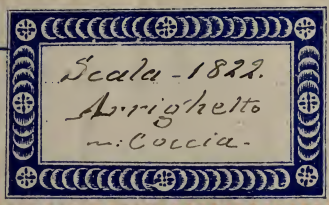 Scala - 1822.
Arrighetto
m: Coccia.